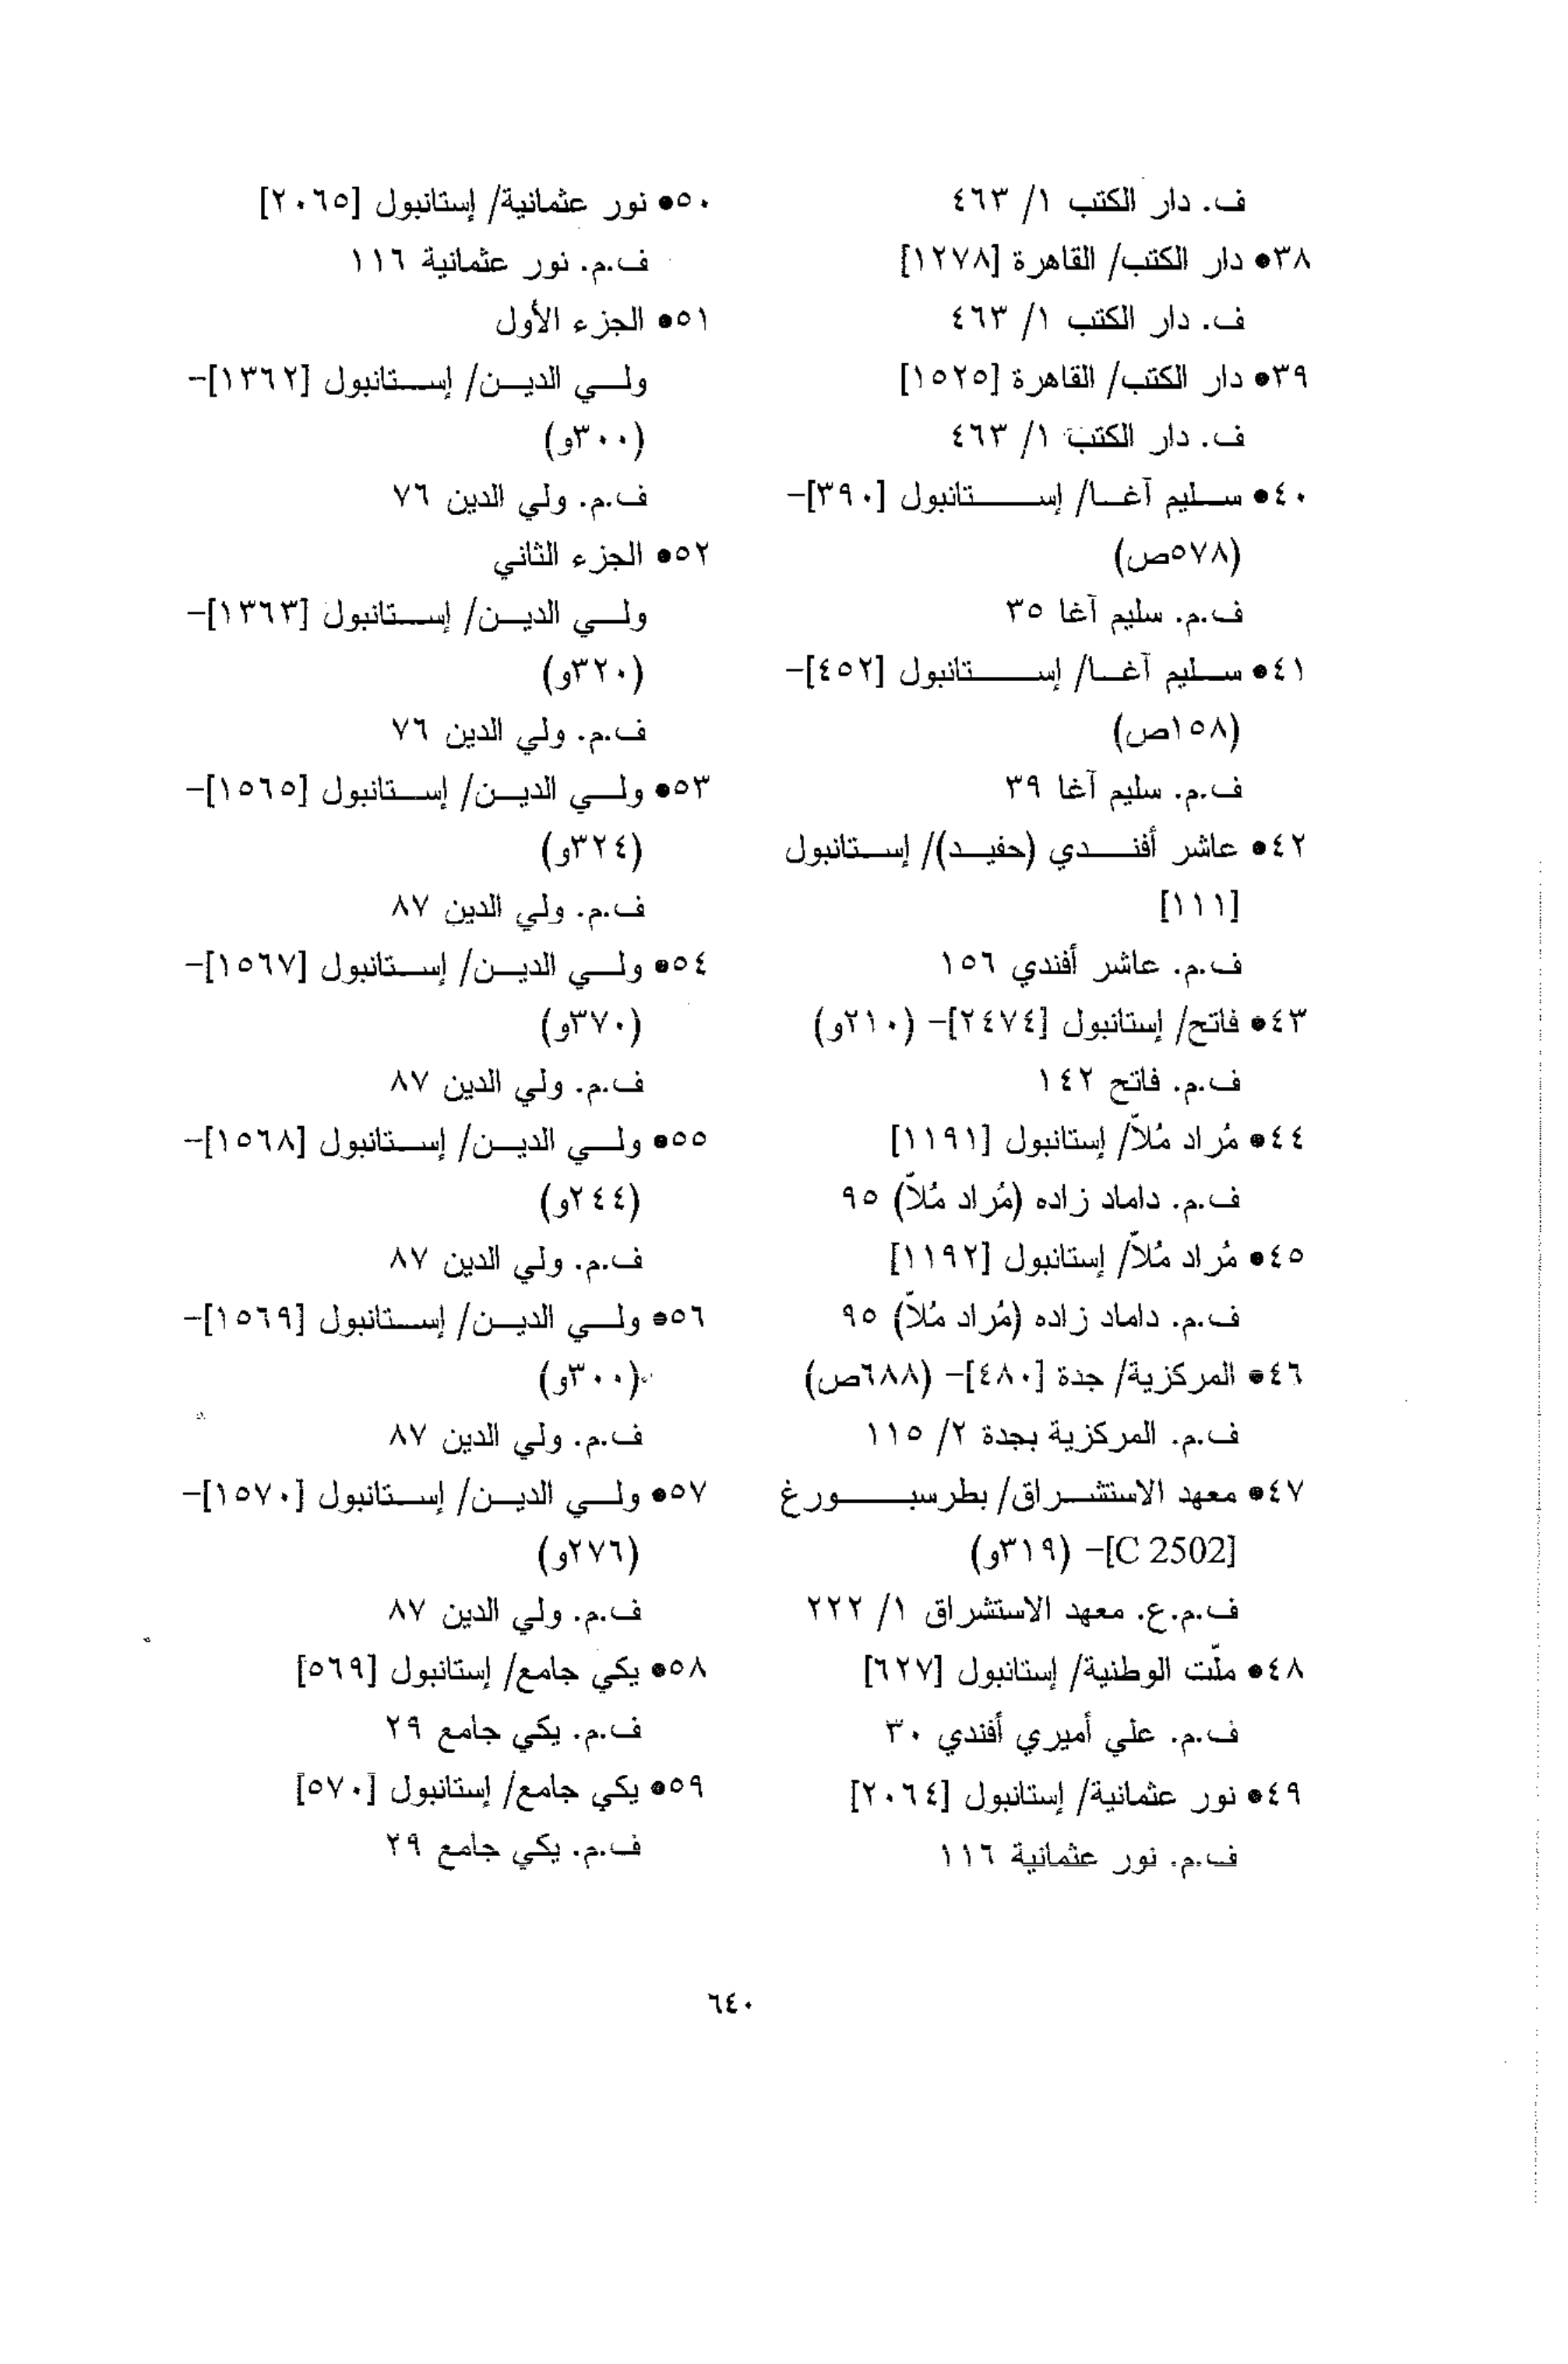 ف. دار الكتب ١/ ٤٦٣
٣٨• دار الكتب/ القاهرة [١٢٧٨]
ف. دار الكتب ١/ ٤٦٣
٣٩• دار الكتب/ القاهرة [١٥٢٥]
ف. دار الكتب ١/ ٤٦٣
٤٠• سليم آغا/ إستانبول [٣٩٠]-
(٥٧٨ص)
ف.م. سليم آغا ٣٥
٤١• سليم آغا/ إستانبول [٤٥٢]-
(١٥٨ص)
ف.م. سليم آغا ٣٩
٤٢• عاشر أفندي (حفيد)/ إستانبول
[١١١]
ف.م. عاشر أفندي ١٥٦
٤٣• فاتح/ إستانبول [٢٤٧٤]- (٢١٠و)
ف.م. فاتح ١٤٢
٤٤• مُراد مُلاّ/ إستانبول [١١٩١]
ف.م. داماد زاده (مُراد مُلاّ) ٩٥
٤٥• مُراد مُلاّ/ إستانبول [١١٩٢]
ف.م. داماد زاده (مُراد مُلاّ) ٩٥
٤٦• المركزية/ جدة [٤٨٠]- (٦٨٨ص)
ف.م. المركزية بجدة ٢/ ١١٥
٤٧• معهد الاستشراق/ بطرسبورغ
[C 2502]- (٣١٩و)
ف.م.ع. معهد الاستشراق ١/ ٢٢٢
٤٨• ملّت الوطنية/ إستانبول [٦٢٧]
ف.م. علي أميري أفندي ٣٠
٤٩• نور عثمانية/ إستانبول [٢٠٦٤]
ف.م. نور عثمانية ١١٦
٥٠• نور عثمانية/ إستانبول [٢٠٦٥]
ف.م. نور عثمانية ١١٦
٥١• الجزء الأول
ولي الدين/ إستانبول [١٣٦٢]-
(٣٠٠و)
ف.م. ولي الدين ٧٦
٥٢• الجزء الثاني
ولي الدين/ إستانبول [١٣٦٣]-
(٣٢٠و)
ف.م. ولي الدين ٧٦
٥٣• ولي الدين/ إستانبول [١٥٦٥]-
(٣٢٤و)
ف.م. ولي الدين ٨٧
٥٤• ولي الدين/ إستانبول [١٥٦٧]-
(٣٧٠و)
ف.م. ولي الدين ٨٧
٥٥• ولي الدين/ إستانبول [١٥٦٨]-
(٢٤٤و)
ف.م. ولي الدين ٨٧
٥٦• ولي الدين/ إستانبول [١٥٦٩]-
(٣٠٠و)
ف.م. ولي الدين ٨٧
٥٧• ولي الدين/ إستانبول [١٥٧٠]-
(٢٧٦و)
ف.م. ولي الدين ٨٧
٥٨• يكي جامع/ إستانبول [٥٦٩]
ف.م. يكي جامع ٢٩
٥٩• يكي جامع/ إستانبول [٥٧٠]
ف.م. يكي جامع ٢٩
٦٤٠